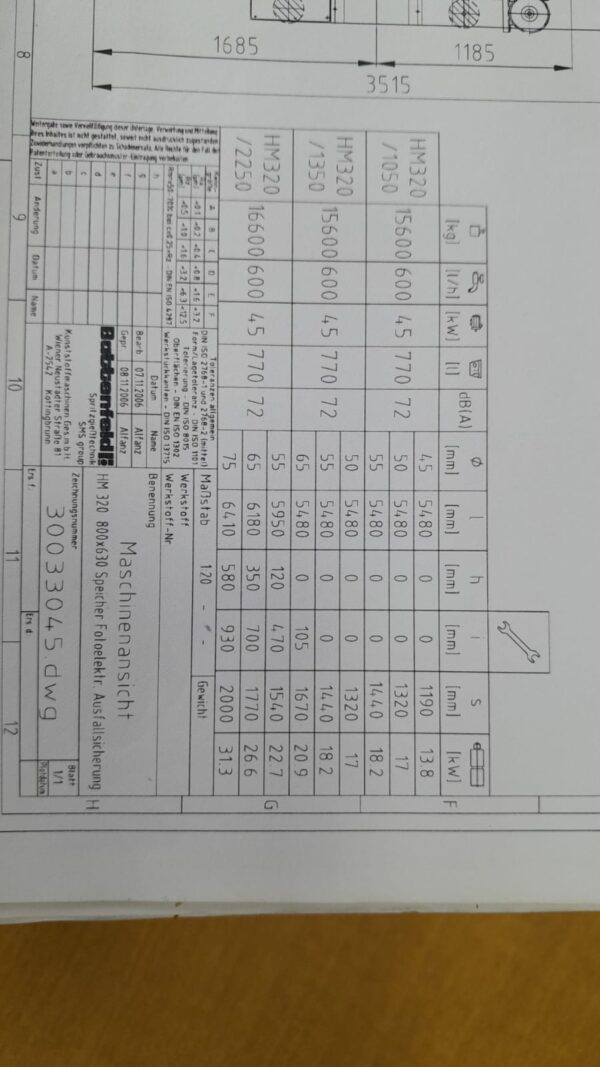 1685
1185
3515
F
Ø l h i s
[kg] [l/h] [kW] [l] dB(A) [mm] [mm] [mm] [mm] [mm] [kW]
HM320 45 5480 0 0 1190 13.8
/1050 15600 600 45 770 72 50 5480 0 0 1320 17
55 5480 0 0 1440 18.2
HM320 50 5480 0 0 1320 17
/1350 15600 600 45 770 72 55 5480 0 0 1440 18.2
65 5480 0 105 1670 20.9
HM320 55 5950 120 470 1540 22.7
/2250 16600 600 45 770 72 65 6180 350 700 1770 26.6
75 6410 580 930 2000 31.3
G
Weitergabe sowie Vervielfältigung dieser Unterlage, Verwertung und Mitteilung
ihres Inhaltes ist nicht gestattet, soweit nicht ausdrücklich zugestanden.
Zuwiderhandlungen verpflichten zu Schadenersatz. Alle Rechte für den Fall der
Patenterteilung oder Gebrauchsmuster-Eintragung vorbehalten
A B C D E F
±0.1 ±0.2 ±0.4 ±0.8 ±1.6 ±3.2
±0.5 ±1.0 ±1.6 ±3.2 ±6.3 ±12.5
DIN EN ISO 4287
Toleranzen allgemein
DIN ISO 2768-1 und 2768-2 (mittel)
Form/Lagetoleranz - DIN ISO 1101
Tolerierung - DIN ISO 8015
Oberflächen - DIN EN ISO 1302
Werkstückkanten - DIN ISO 13715
Maßstab 1:20 - - Gewicht
Werkstoff
Werkstoff-Nr
h
g
f
e
d
c
b
a
Zust Änderung Datum Name
Datum Name
Bearb. 07.11.2006 Alfanz
Gepr. 08.11.2006 Alfanz
Battenfeld
Spritzgießtechnik
SMS group
Kunststoffmaschinen Ges.m.b.H.
Wiener Neustädter Straße 81
A-2542 Kottingbrunn
Benennung
Maschinenansicht
HM 320 800x630 Speicher Fotoelektr. Ausfallsicherung
Zeichnungsnummer
30033045.dwg
Blatt
1/1
Ers f.
Ers d.
H
8 9 10 11 12